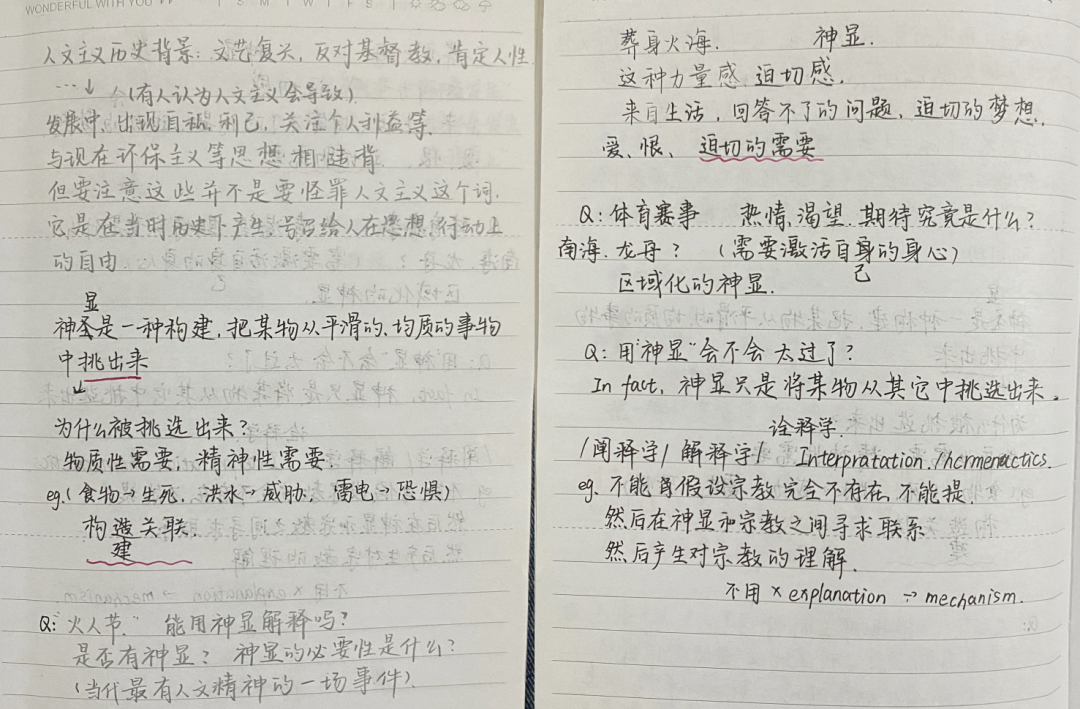 WONDERFUL WITH YOU
人文主义历史背景:文艺复兴,反对基督教,肯定人性.
…↓ (有人认为人文主义会导致)
发展中,出现自私利己,关注个人利益等.
与现在环保主义等思想相违背
但要注意这些并不是要怪罪人文主义这个词.
它是在当时历史下产生,号召给人在思想,行动上
的自由.
显
神圣是一种构建,把某物从平滑的、均质的事物
中挑出来
↓
为什么被挑选出来?
物质性需要,精神性需要.
eg.(食物→生死, 洪水→威胁, 雷电→恐惧)
构造关联.
建
Q:"火人节" 能用神显解释吗?
是否有神显? 神显的必要性是什么?
(当代最有人文精神的一场事件).
葬身火海. 神显.
这种力量感,迫切感.
来自生活,回答不了的问题,迫切的梦想.
爱、恨、迫切的需要
Q:体育赛事 热情,渴望,期待究竟是什么?
南海.龙母? (需要激活自身的身心)
己
区域化的神显.
Q:用"神显"会不会太过了?
In fact,神显只是将某物从其它中挑选出来。
诠释学.
/阐释学/ 解释学/ Interpratation./hcrmenactics.
eg. 不能自假设宗教完全不存在,不能提.
然后在神显和宗教之间寻求联系
然后产生对宗教的理解.
不用 × explanation → mechanism.